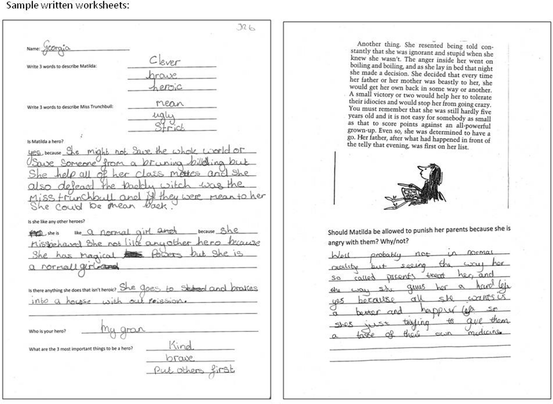 Sample written worksheets:
326
Name: Georgia
Write 3 words to describe Matilda:
Clever
brave
heroic
Write 3 words to describe Miss Trunchbull:
mean
ugly
Strict
Is Matilda a hero?
yes, because She might not Save the whole world or
Save Someone from a bruning bilding but
She help all of her class mates and She
also defead the baddy witch was the
Miss trunchbull and if they were mean to her
She could be mean back.
Is she like any other heroes?
she is like a normal girl because she
misbehaved She not like any other hero because
She has magical powers but She is
a normall girl
Is there anything she does that isn't heroic? She goes to and brakes
into a house with out
Who is your hero? My gran
What are the 3 most important things to be a hero?
Kind
brave
Put others first
Another thing. She resented being told con-
stantly that she was ignorant and stupid when she
knew she wasn't. The anger inside her went on
boiling and boiling, and as she lay in bed that night
she made a decision. She decided that every time
her father or her mother was beastly to her, she
would get her own back in some way or another.
A small victory or two would help her to tolerate
their idiocies and would stop her from going crazy.
You must remember that she was still hardly five
years old and it is not easy for somebody as small
as that to score points against an all-powerful
grown-up. Even so, she was determined to have a
go. Her father, after what had happened in front of
the telly that evening, was first on her list.
Should Matilda be allowed to punish her parents because she is
angry with them? Why/not?
Well probably not in normal
reality but seeing the way her
so called parents treat her, and
the way she gives her a hard life
yes because all she wants is
a better and happier life so
shes just trying to give them
a taste of their own medicine.